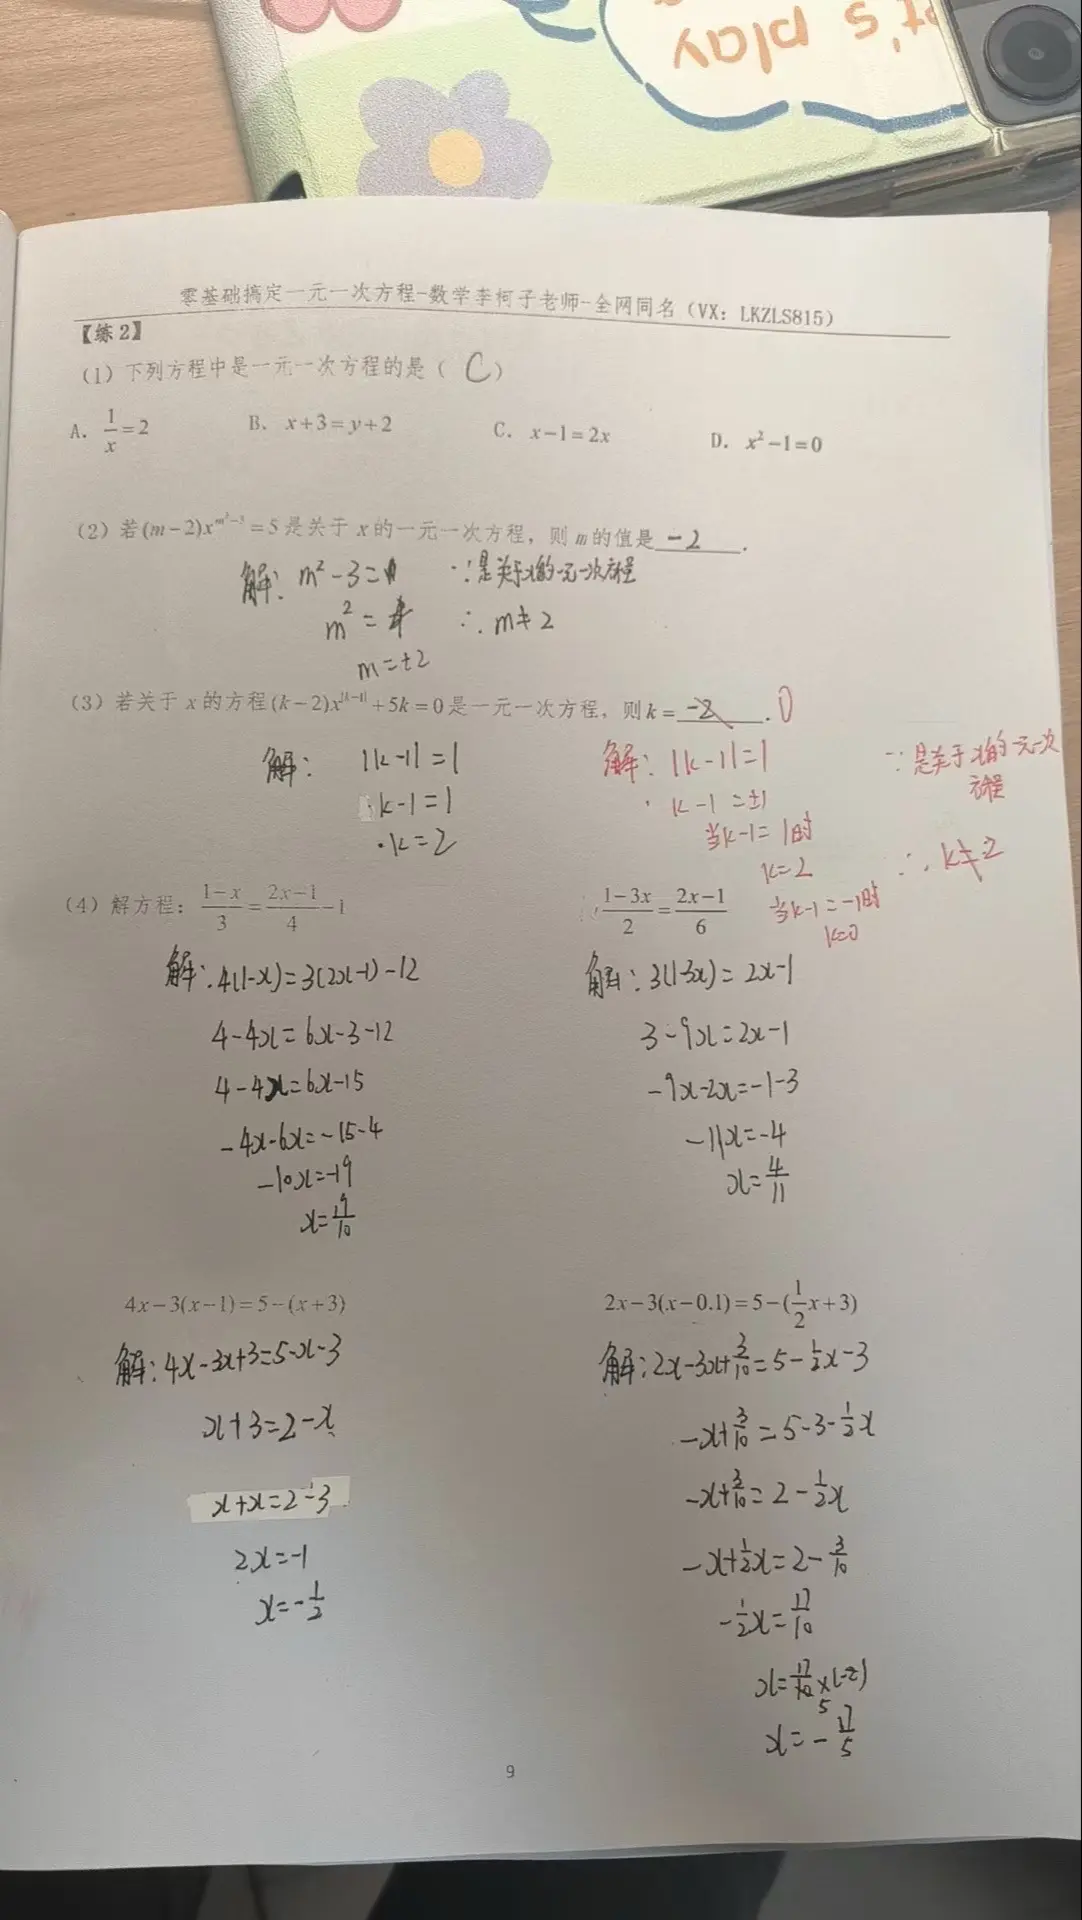 t's play
零基础搞定一元一次方程-数学李柯子老师-全网同名（VX：LKZLS815）
【练2】
（1）下列方程中是一元一次方程的是（ C ）
A. 1/x=2 B. x+3=y+2 C. x-1=2x D. x²-1=0
（2）若(m-2)x^(m²-3)=5是关于x的一元一次方程，则m的值是 -2 .
解：m²-3=1 ∵是关于x的一元一次方程
m²=4 ∴m≠2
m=±2
（3）若关于x的方程(k-2)x^|k-1|+5k=0是一元一次方程，则k= -2 . 0
解： |k-1|=1 解：|k-1|=1 ∵是关于x的一元一次
k-1=1 k-1=±1 方程
当k-1=1时
k=2 k=2 ∴k≠2
（4）解方程：(1-x)/3=(2x-1)/4-1 (1-3x)/2=(2x-1)/6 当k-1=-1时
k=0
解：4(1-x)=3(2x-1)-12 解：3(1-3x)=2x-1
4-4x=6x-3-12 3-9x=2x-1
4-4x=6x-15 -9x-2x=-1-3
-4x-6x=-15-4 -11x=-4
-10x=-19 x=4/11
x=19/10
4x-3(x-1)=5-(x+3) 2x-3(x-0.1)=5-(1/2x+3)
解：4x-3x+3=5-x-3 解：2x-3x+3/10=5-1/2x-3
x+3=2-x -x+3/10=5-3-1/2x
x+x=2-3 -x+3/10=2-1/2x
2x=-1 -x+1/2x=2-3/10
x=-1/2 -1/2x=17/10
x=17/10×(-2)
5
x=-17/5
9